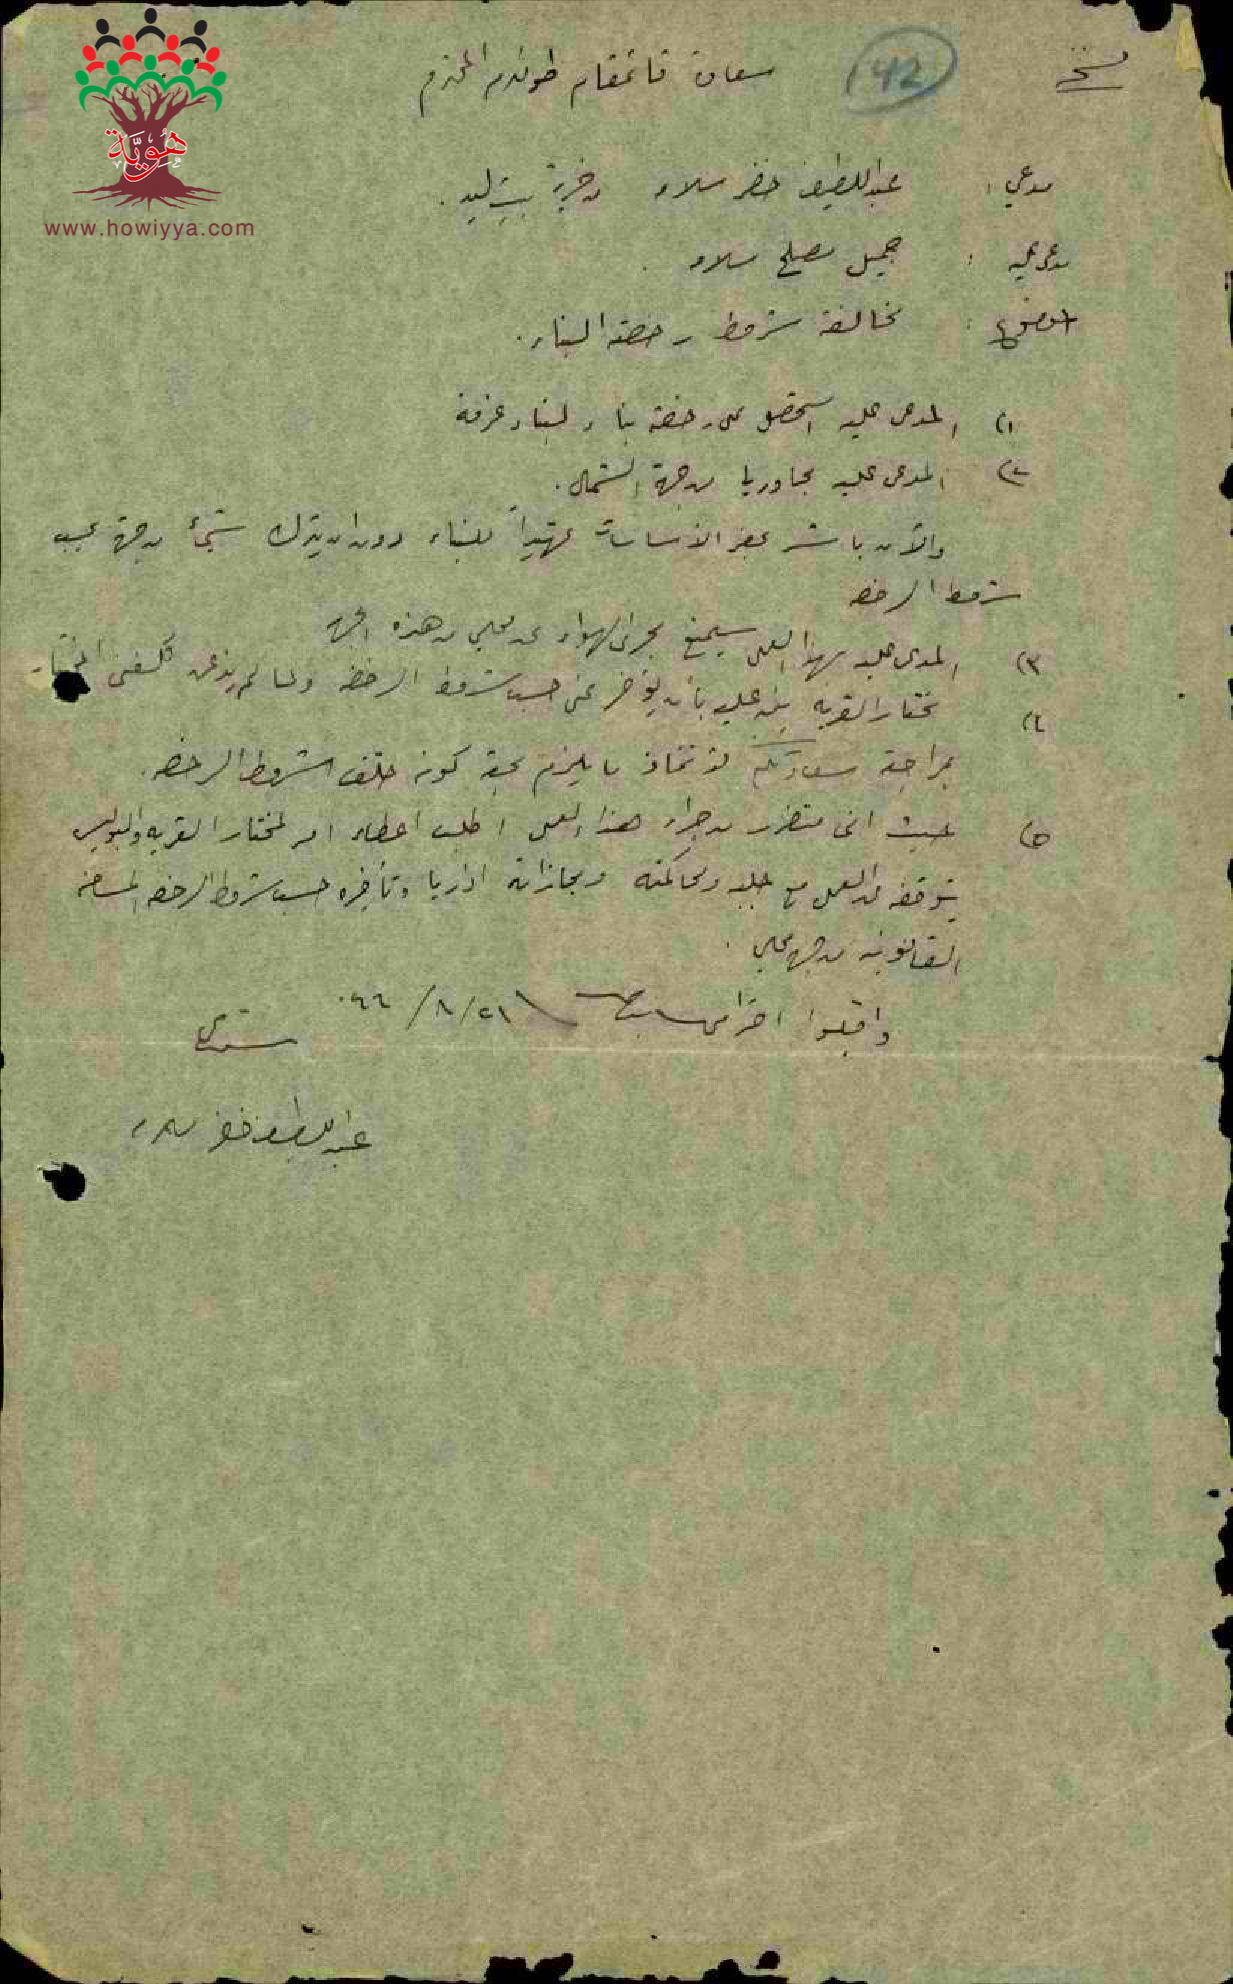 هُوِيَّة
www.howiyya.com
نسخة
142
سعادة قائمقام طولكرم المحترم
مدعي : عبد اللطيف خضر سلامه من قرية بيت ليد .
مدعى عليه : جميل مصلح سلامه .
الموضوع : مخالفة شروط رخصة البناء .
١) المدعى عليه استحصل على رخصة بناء لبناء غرفة
٢) المدعى عليه بجاورنا من جهة الشمال .
والآن باشر بحفر الأساسات تمهيداً للبناء دون ان يترك شيئاً من جهتي حسب
شروط الرخصه
٣) المدعى عليه بهذا العمل سيمنع مجرى الهواء عن محلي من هذه الجهه
٤) مختار القريه نبه عليه بأن يتأخر عني حسب شروط الرخصه ولما لم يذعن كلفني المختار
بمراجعة سعادتكم لاتخاذ ما يلزم بحقه كونه خالف شروط الرخصه .
٥) حيث اني متضرر من جراء هذا العمل اطلب اعطاء امر لمختار القريه والبوليس
بتوقيفه عن العمل مع جلبه ومحاكمته ومجازاته اداريا وتأخيره حسب شروط الرخصه المسافه
القانونيه من جهة محلي .
واقبلوا احترامي سيدي ٢١/٨/٩٦٦
مستدعي
عبد اللطيف خضر سلامه